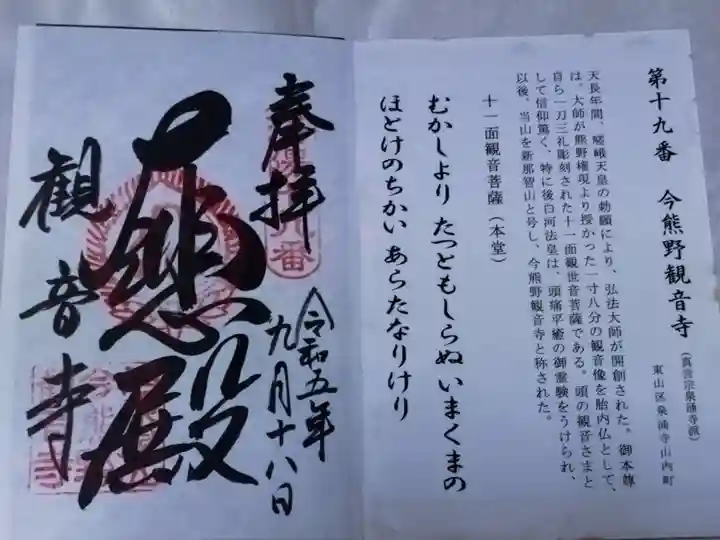 第十九番 今熊野観音寺
(真言宗泉涌寺派)
東山区泉涌寺山内町
天長年間、嵯峨天皇の勅願により、弘法大師が開創された。御本尊
は、大師が熊野権現より授かった一寸八分の観音像を胎内仏として、
自ら一刀三礼彫刻された十一面観世音菩薩である。頭の観音さまと
して信仰篤く、特に後白河法皇は、頭痛平癒の御霊験をうけられ、
以後、当山を新那智山と号し、今熊野観音寺と称された。
十一面観音菩薩(本堂)
むかしより たつともしらぬ いまくまの
ほとけのちかい あらたなりけり
奉拝
令和五年
九月十八日
大悲殿
観音寺